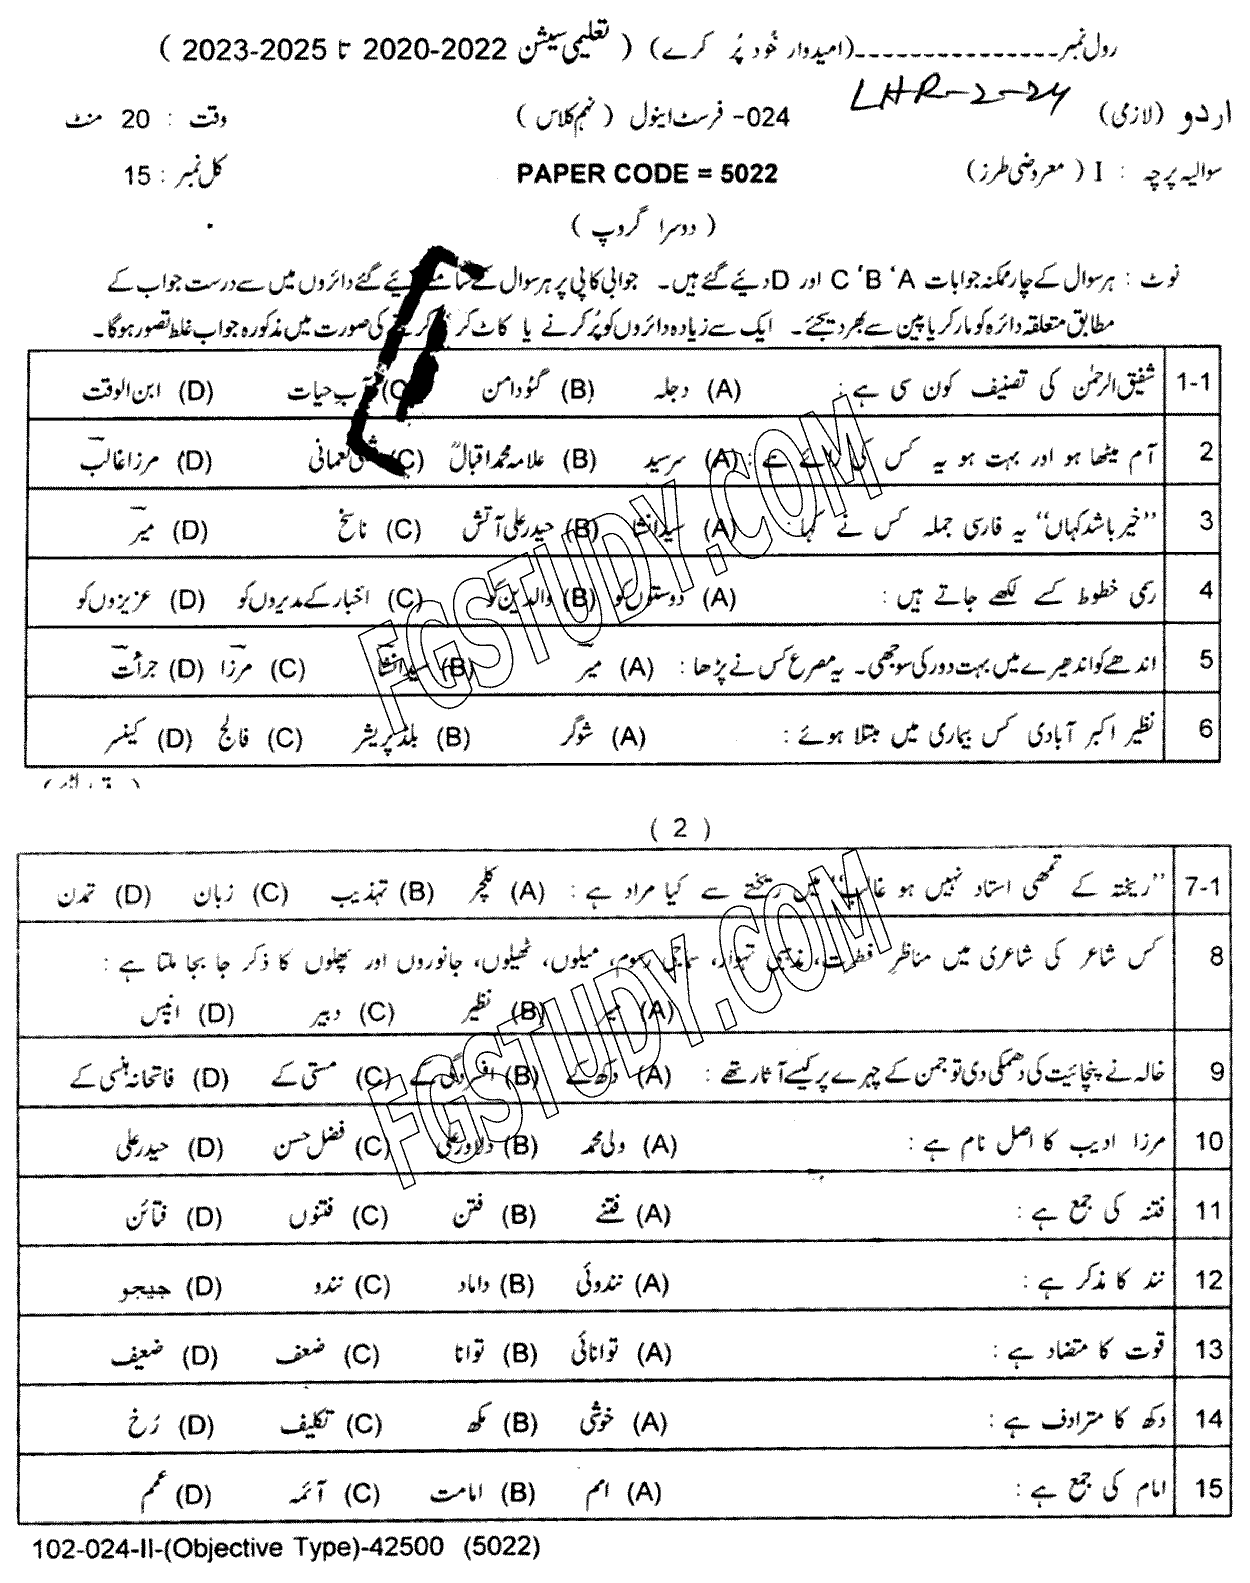 رول نمبر ۔۔۔۔۔۔۔۔۔۔۔۔۔۔۔ (امیدوار خُود پُر کرے) ( تعلیمی سیشن 2022-2020 تا 2025-2023 )
LHR-2-24
اردو (لازمی) 024- فرسٹ اینول ( نہم کلاس ) وقت : 20 منٹ
سوالیہ پرچہ : I ( معروضی طرز ) PAPER CODE = 5022 کل نمبر : 15
( دوسرا گروپ )
نوٹ : ہر سوال کے چار ممکنہ جوابات A ‘B ‘C اور D دیئے گئے ہیں۔ جوابی کاپی پر ہر سوال کے سامنے دیئے گئے دائروں میں سے درست جواب کے
مطابق متعلقہ دائرہ کو مارکر یا پین سے بھر دیجئے۔ ایک سے زیادہ دائروں کو پُر کرنے یا کاٹ کر پُر کرنے کی صورت میں مذکورہ جواب غلط تصور ہوگا۔
1-1 شفیق الرحمٰن کی تصنیف کون سی ہے : (A) دجلہ (B) گئو دامن (C) آبِ حیات (D) ابن الوقت
2 آم میٹھا ہو اور بہت ہو یہ کس کی رائے ہے : (A) سر سید (B) علامہ محمد اقبالؒ (C) شبلی نعمانی (D) مرزا غالب
3 ’’خیر باشد کہاں‘‘ یہ فارسی جملہ کس نے کہا : (A) سید انشا (B) حیدر علی آتش (C) ناسخ (D) میر
4 رسمی خطوط کسے لکھے جاتے ہیں : (A) دوستوں کو (B) والدین کو (C) اخبار کے مدیروں کو (D) عزیزوں کو
5 اندھے کو اندھیرے میں بہت دور کی سوجھی۔ یہ مصرع کس نے پڑھا : (A) میر (B) سید انشا (C) مرزا (D) جرأت
6 نظیر اکبر آبادی کس بیماری میں مبتلا ہوئے : (A) شوگر (B) بلڈ پریشر (C) فالج (D) کینسر
( 2 )
7-1 ’’ریختہ کے تمھی استاد نہیں ہو غالب‘‘ میں ریختے سے کیا مراد ہے : (A) کلچر (B) تہذیب (C) زبان (D) تمدن
8 کس شاعر کی شاعری میں مناظر فطرت، مذہبی تہوار، سماجی رسوم، میلوں، ٹھیلوں، جانوروں اور پھلوں کا ذکر جا بجا ملتا ہے :
(A) میر (B) نظیر (C) دبیر (D) انیس
9 خالہ نے پنچائیت کی دھمکی دی تو جمن کے چہرے پر کیسے آثار تھے : (A) دکھ کے (B) افسردگی کے (C) مستی کے (D) فاتحانہ ہنسی کے
10 مرزا ادیب کا اصل نام ہے : (A) ولی محمد (B) دلاور علی (C) فضل حسن (D) حیدر علی
11 فتنہ کی جمع ہے : (A) فتنے (B) فتن (C) فتنوں (D) فتائن
12 نند کا مذکر ہے : (A) نندوئی (B) داماد (C) نندو (D) جیجو
13 قوت کا متضاد ہے : (A) توانائی (B) توانا (C) ضعف (D) ضعیف
14 دکھ کا مترادف ہے : (A) خوشی (B) مکھ (C) تکلیف (D) رُخ
15 امام کی جمع ہے : (A) امم (B) امامت (C) آئمہ (D) عمم
102-024-II-(Objective Type)-42500 (5022)
FGSTUDY.COM
FGSTUDY.COM